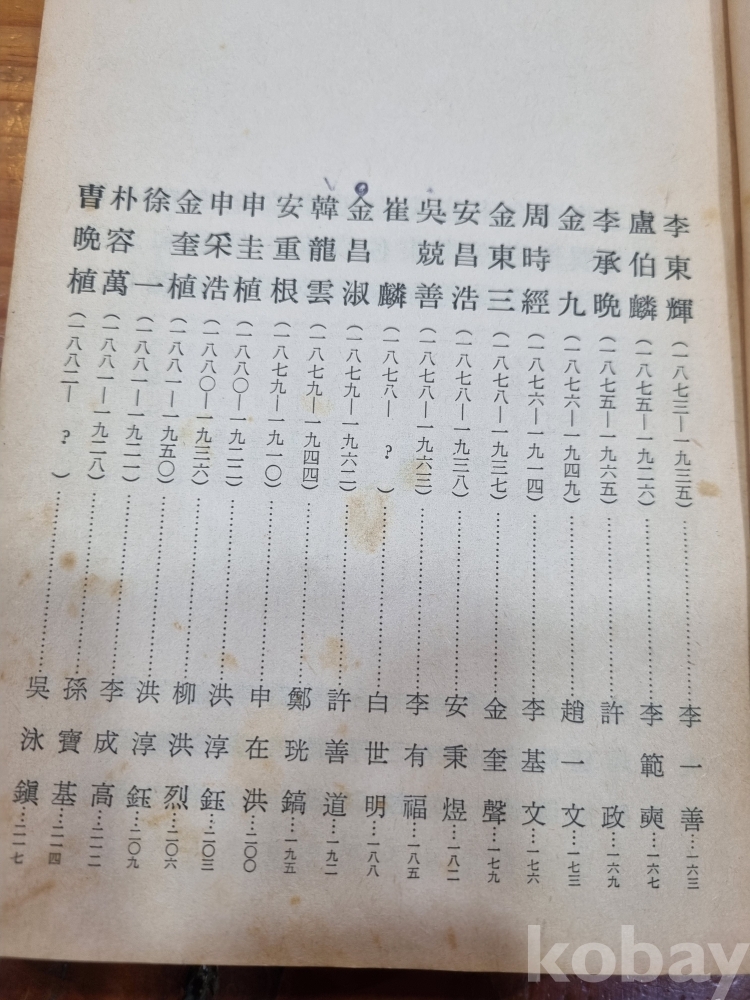 李東輝(一八七三―一九三五)……李一善…一六三
盧伯麟(一八七五―一九二六)……李範奭…一六七
李承晩(一八七五―一九六五)……許政…一六九
金九(一八七六―一九四九)……趙一文…一七三
周時經(一八七六―一九一四)……李基文…一七六
金東三(一八七八―一九三七)……金奎聲…一七九
安昌浩(一八七八―一九三八)……安秉煜…一八二
吳兢善(一八七八―一九六三)……李有福…一八五
崔麟(一八七八―?)……白世明…一八八
金昌淑(一八七九―一九六二)……許善道…一九二
韓龍雲(一八七九―一九四四)……鄭珖鎬…一九五
安重根(一八七九―一九一〇)……申在洪…二〇〇
申圭植(一八八〇―一九二二)……洪淳鈺…二〇三
申采浩(一八八〇―一九三六)……柳洪烈…二〇六
金奎植(一八八一―一九五〇)……洪淳鈺…二〇九
徐一(一八八一―一九二一)……李成高…二一二
朴容萬(一八八一―一九二八)……孫寶基…二一四
曺晩植(一八八二―?)……吳泳鎭…二一七
kobay